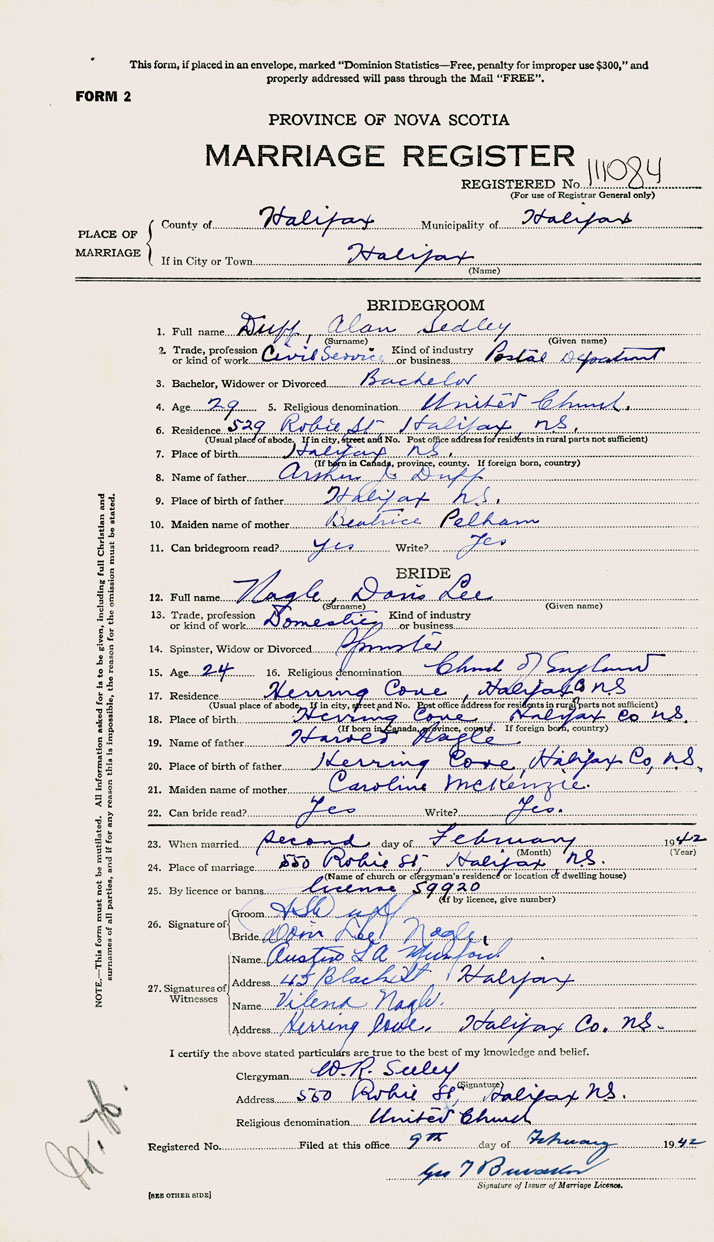 This form, if placed in an envelope, marked “Dominion Statistics—Free, penalty for improper use $300,” and
properly addressed will pass through the Mail “FREE”.
FORM 2
PROVINCE OF NOVA SCOTIA
MARRIAGE REGISTER
REGISTERED No. 111084
(For use of Registrar General only)
PLACE OF MARRIAGE
County of Halifax Municipality of Halifax
If in City or Town Halifax
(Name)
BRIDEGROOM
1. Full name Duff, Alan Sedley
(Surname) (Given name)
2. Trade, profession or kind of work Civil Service Kind of industry or business Postal Department
3. Bachelor, Widower or Divorced Bachelor
4. Age 29 5. Religious denomination United Church.
6. Residence 529 Robie St Halifax, NS.
(Usual place of abode. If in city, street and No. Post office address for residents in rural parts not sufficient)
7. Place of birth Halifax NS.
(If born in Canada, province, county. If foreign born, country)
8. Name of father Arthur J. Duff
9. Place of birth of father Halifax N.S.
10. Maiden name of mother Beatrice Pelham
11. Can bridegroom read? yes Write? Yes
BRIDE
12. Full name Nagle, Doris Lee
(Surname) (Given name)
13. Trade, profession or kind of work Domestic Kind of industry or business
14. Spinster, Widow or Divorced Spinster
15. Age 24 16. Religious denomination Church of England
17. Residence Herring Cove, Halifax Co NS
(Usual place of abode. If in city, street and No. Post office address for residents in rural parts not sufficient)
18. Place of birth Herring Cove Halifax Co NS.
(If born in Canada, province, county. If foreign born, country)
19. Name of father Harold Nagle
20. Place of birth of father Herring Cove, Halifax Co, N.S.
21. Maiden name of mother Caroline McKenzie.
22. Can bride read? Yes Write? Yes.
23. When married second day of February 1942
(Month) (Year)
24. Place of marriage 550 Robie St, Halifax NS.
(Name of church or clergyman's residence or location of dwelling house)
25. By licence or banns license 59920
(If by licence, give number)
26. Signature of
Groom
Bride Doris Lee Nagle
27. Signatures of Witnesses
Name Austin L A
Address 45 Black St Halifax
Name Vilena Nagle.
Address Herring Cove, Halifax Co. NS.
I certify the above stated particulars are true to the best of my knowledge and belief.
Clergyman W. R. Seeley
(Signature)
Address 550 Robie St, Halifax NS.
Religious denomination United Church
Registered No. Filed at this office 9th day of February 1942
Geo T
Signature of Issuer of Marriage Licence.
[SEE OTHER SIDE]
NOTE.—This form must not be mutilated. All information asked for is to be given, including full Christian and
surnames of all parties, and if for any reason this is impossible, the reason for the omission must be stated.